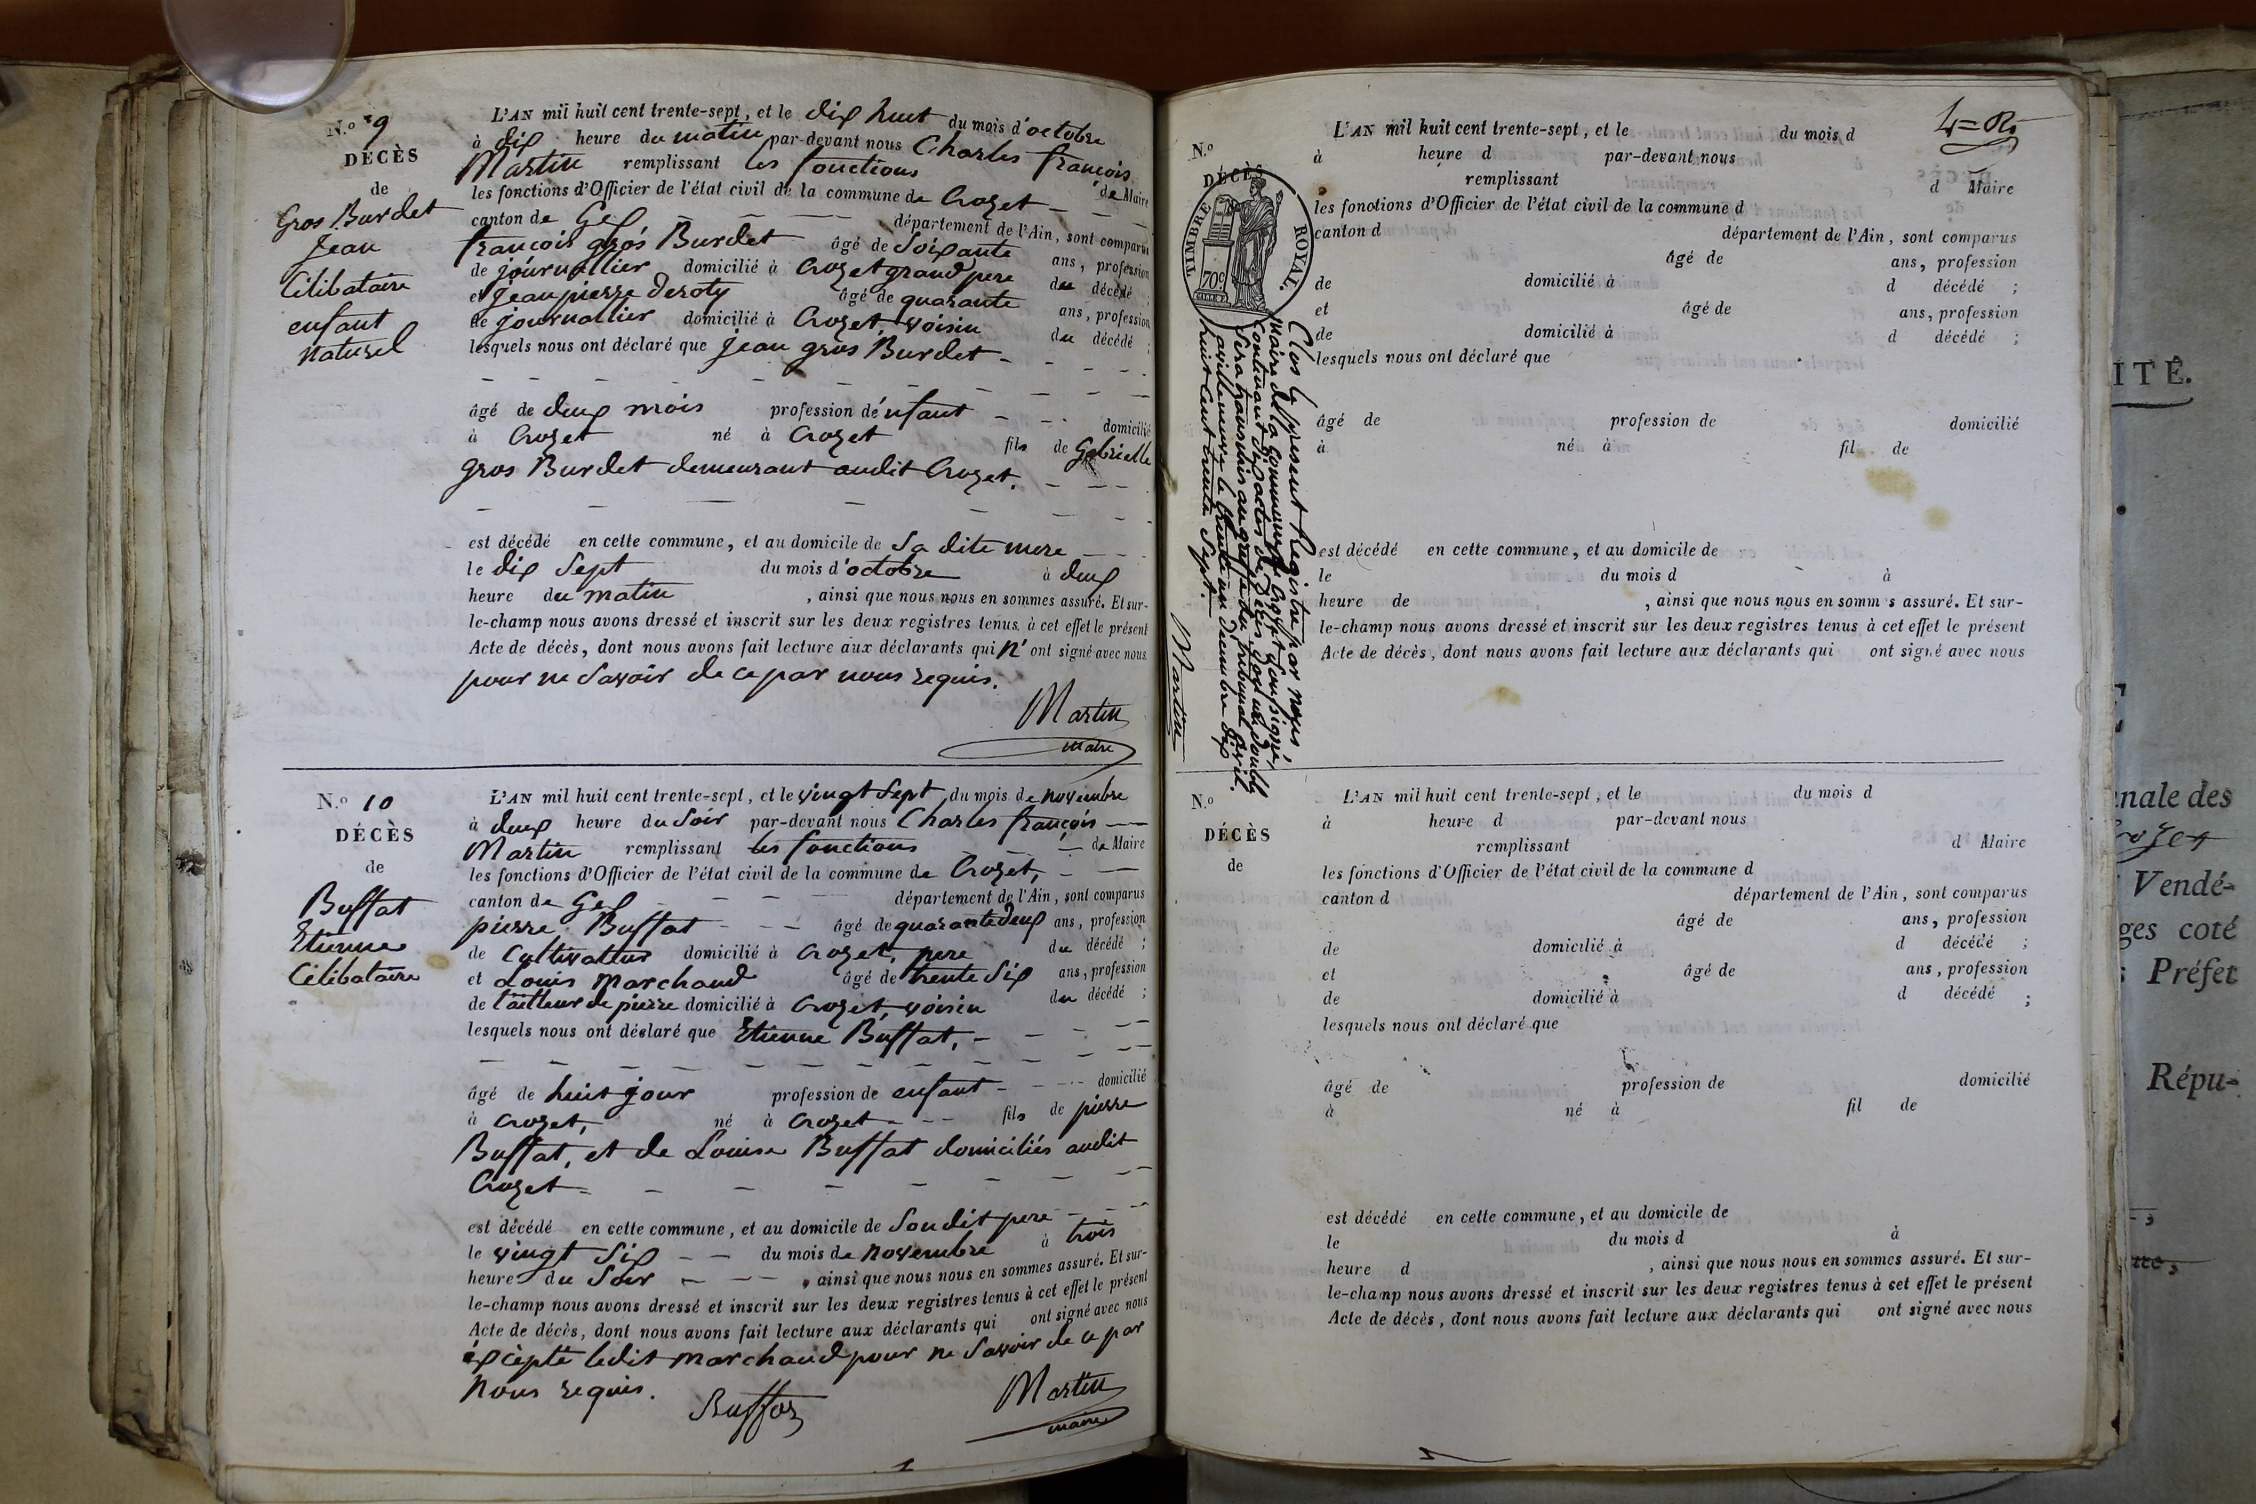 N.° 9
DÉCÈS
de
Gros Burdet
Jean
Célibataire
enfant
naturel
L'AN mil huit cent trente-sept, et le dix huit du mois d'octobre
à dix heure du matin par-devant nous Charles françois
Martin remplissant les fonctions de Maire
les fonctions d'Officier de l'état civil de la commune de Crozet
canton de Gex département de l'Ain, sont comparus
françois gros Burdet âgé de Soixante ans, profession
de journallier domicilié à Crozet grand pere du décédé ;
et jean pierre deroty âgé de quarante ans, profession
de journallier domicilié à Crozet, voisin du décédé ;
lesquels nous ont déclaré que jean gros Burdet
âgé de deux mois profession d'énfant domicilié
à Crozet né à Crozet fils de Gabrielle
gros Burdet demeurant audit Crozet.
est décédé en cette commune, et au domicile de Sa dite mere
le dix Sept du mois d'octobre à deux
heure du matin , ainsi que nous nous en sommes assuré. Et sur-
le-champ nous avons dressé et inscrit sur les deux registres tenus à cet effet le présent
Acte de décès, dont nous avons fait lecture aux déclarants qui n'ont signé avec nous
pour ne Savoir de ce par nous requis.
Martin
maire
N.° 10
DÉCÈS
de
Buffat
Etienne
Célibataire
L'AN mil huit cent trente-sept, et le vingt Sept du mois de novembre
à deux heure du Soir par-devant nous Charles françois
Martin remplissant les fonctions de Maire
les fonctions d'Officier de l'état civil de la commune de Crozet,
canton de Gex département de l'Ain, sont comparus
pierre Buffat âgé de quarante deux ans, profession
de Cultivateur domicilié à Crozet, pere du décédé ;
et Louis Marchand âgé de trente Six ans, profession
de tailleur de pierre domicilié à Crozet, voisin du décédé ;
lesquels nous ont déclaré que Etienne Buffat,
âgé de huit jour profession de enfant domicilié
à Crozet, né à Crozet fils de pierre
Buffat, et de Louise Buffat domiciliés audit
Crozet
est décédé en cette commune, et au domicile de Son dit pere
le vingt Six du mois de novembre à trois
heure du Soir , ainsi que nous nous en sommes assuré. Et sur-
le-champ nous avons dressé et inscrit sur les deux registres tenus à cet effet le présent
Acte de décès, dont nous avons fait lecture aux déclarants qui ont signé avec nous
éxcèpté ledit Marchand pour ne Savoir de ce par
nous requis.
Buffat
Martin
maire
N.°
DÉCÈS
TIMBRE ROYAL
70c.
Clos le présent Registre par nous,
Maire de la commune de Crozet Soussigné,
Contenant dix actes de décès, dont un double
Sera transmis au greffe du tribunal Civil.
le trente un décembre dix
huit Cent trente Sept.
Martin
L'AN mil huit cent trente-sept, et le du mois d
à heure d par-devant nous
remplissant d Maire
les fonctions d'Officier de l'état civil de la commune d
canton d département de l'Ain, sont comparus
âgé de ans, profession
de domicilié à d décédé ;
et âgé de ans, profession
de domicilié à d décédé ;
lesquels nous ont déclaré que
âgé de profession de domicilié
à né à fil de
est décédé en cette commune, et au domicile de
le du mois d à
heure de , ainsi que nous nous en somm s assuré. Et sur-
le-champ nous avons dressé et inscrit sur les deux registres tenus à cet effet le présent
Acte de décès, dont nous avons fait lecture aux déclarants qui ont signé avec nous
N.°
DÉCÈS
de
L'AN mil huit cent trente-sept, et le du mois d
à heure d par-devant nous
remplissant d Maire
les fonctions d'Officier de l'état civil de la commune d
canton d département de l'Ain, sont comparus
âgé de ans, profession
de domicilié à d décédé ;
et âgé de ans, profession
de domicilié à d décédé ;
lesquels nous ont déclaré que
âgé de profession de domicilié
à né à fil de
est décédé en cette commune, et au domicile de
le du mois d à
heure d , ainsi que nous nous en sommes assuré. Et sur-
le-champ nous avons dressé et inscrit sur les deux registres tenus à cet effet le présent
Acte de décès, dont nous avons fait lecture aux déclarants qui ont signé avec nous
ITÉ.
nale des
Vendé-
ges coté
Préfet
Répu-